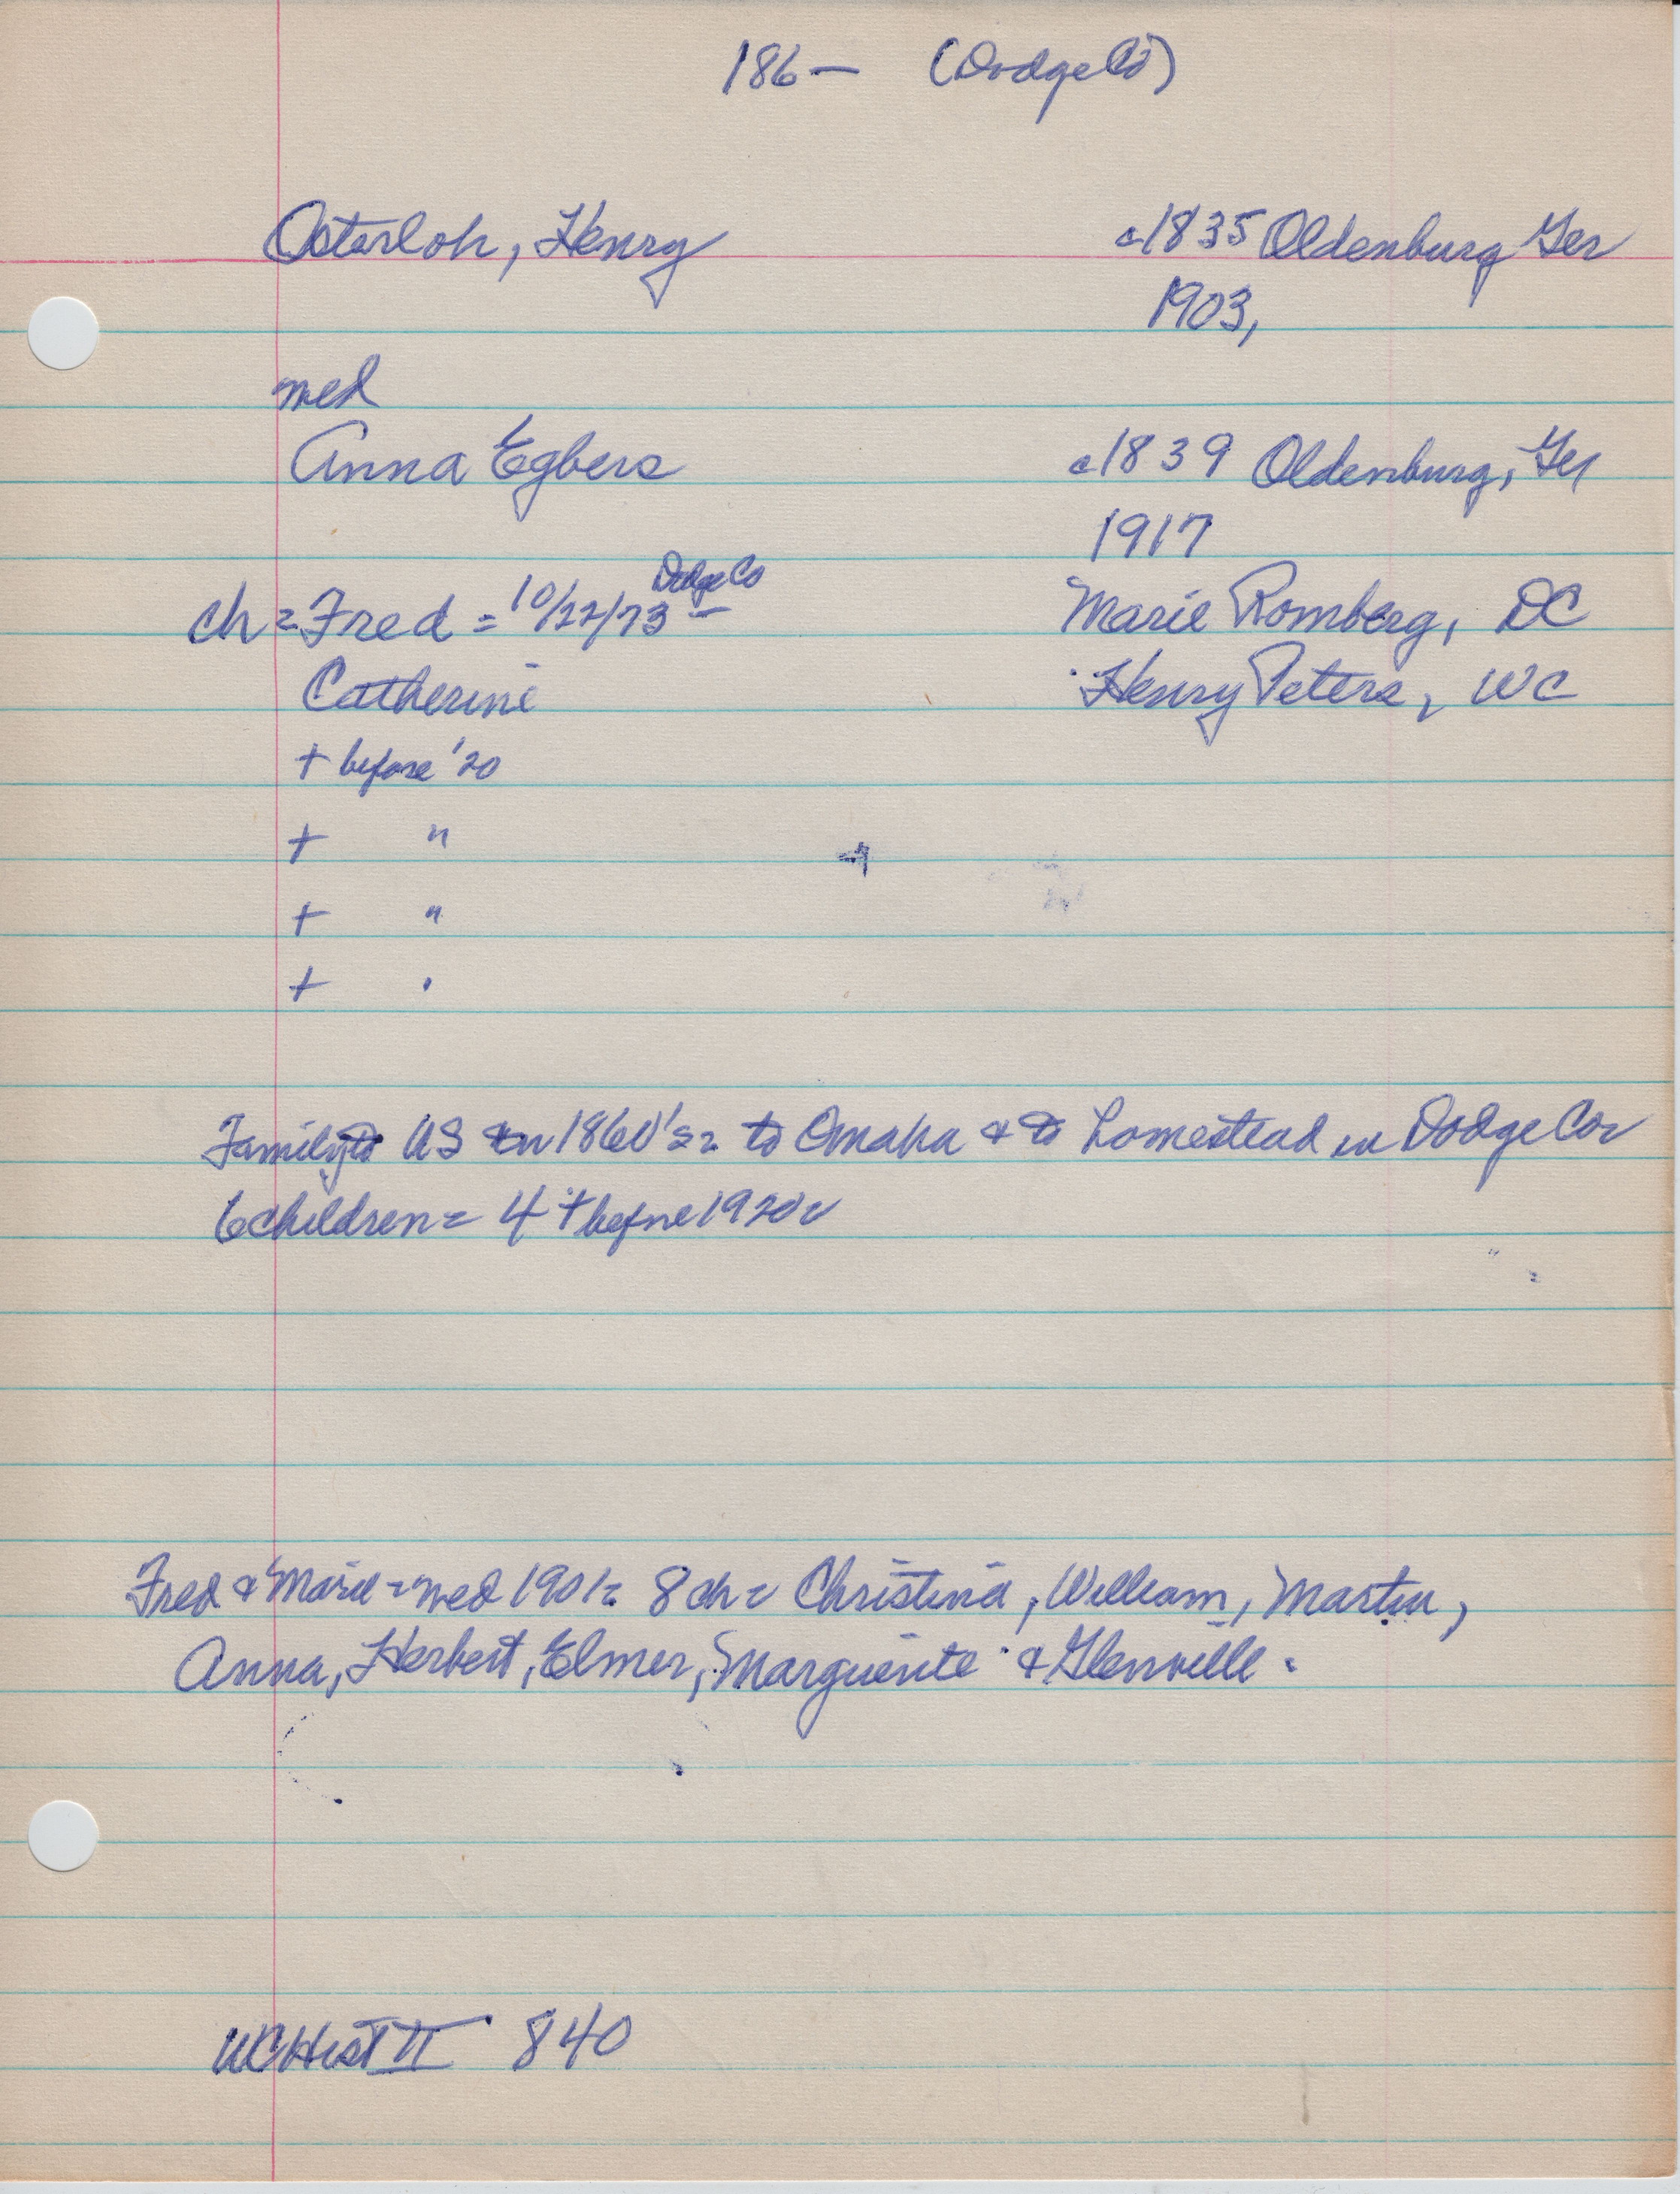 186— (Dodge Co)
Osterloh, Henry c1835 Oldenburg Ger
1903,
med
Anna Egbers c1839 Oldenburg, Ger
1917
ch = Fred = 10/22/73 Dodge Co — Marie Romberg, DC
Catherine Henry Peters, WC
+ before '20
+ "
+ "
+ "
Family to US in 1860's = to Omaha & to homestead in Dodge Co
6 children = 4 + before 1920
Fred & Marie = med 1901 = 8 ch = Christina, William, Martin,
Anna, Herbert, Elmer, Marguerite & Glenville.
WC Hist II 840